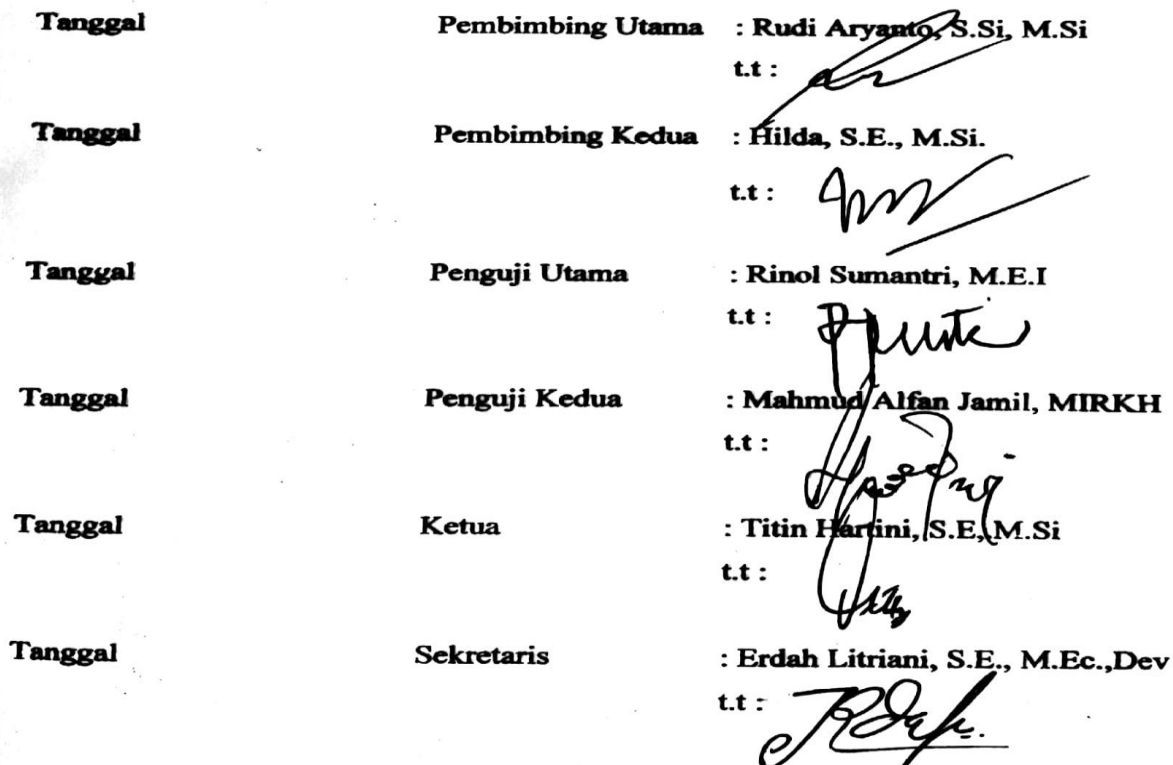 Tanggal Pembimbing Utama : Rudi Aryanto, S.Si, M.Si
t.t :
Tanggal Pembimbing Kedua : Hilda, S.E., M.Si.
t.t :
Tanggal Penguji Utama : Rinol Sumantri, M.E.I
t.t :
Tanggal Penguji Kedua : Mahmud Alfan Jamil, MIRKH
t.t :
Tanggal Ketua : Titin Hartini, S.E, M.Si
t.t :
Tanggal Sekretaris : Erdah Litriani, S.E., M.Ec.,Dev
t.t :